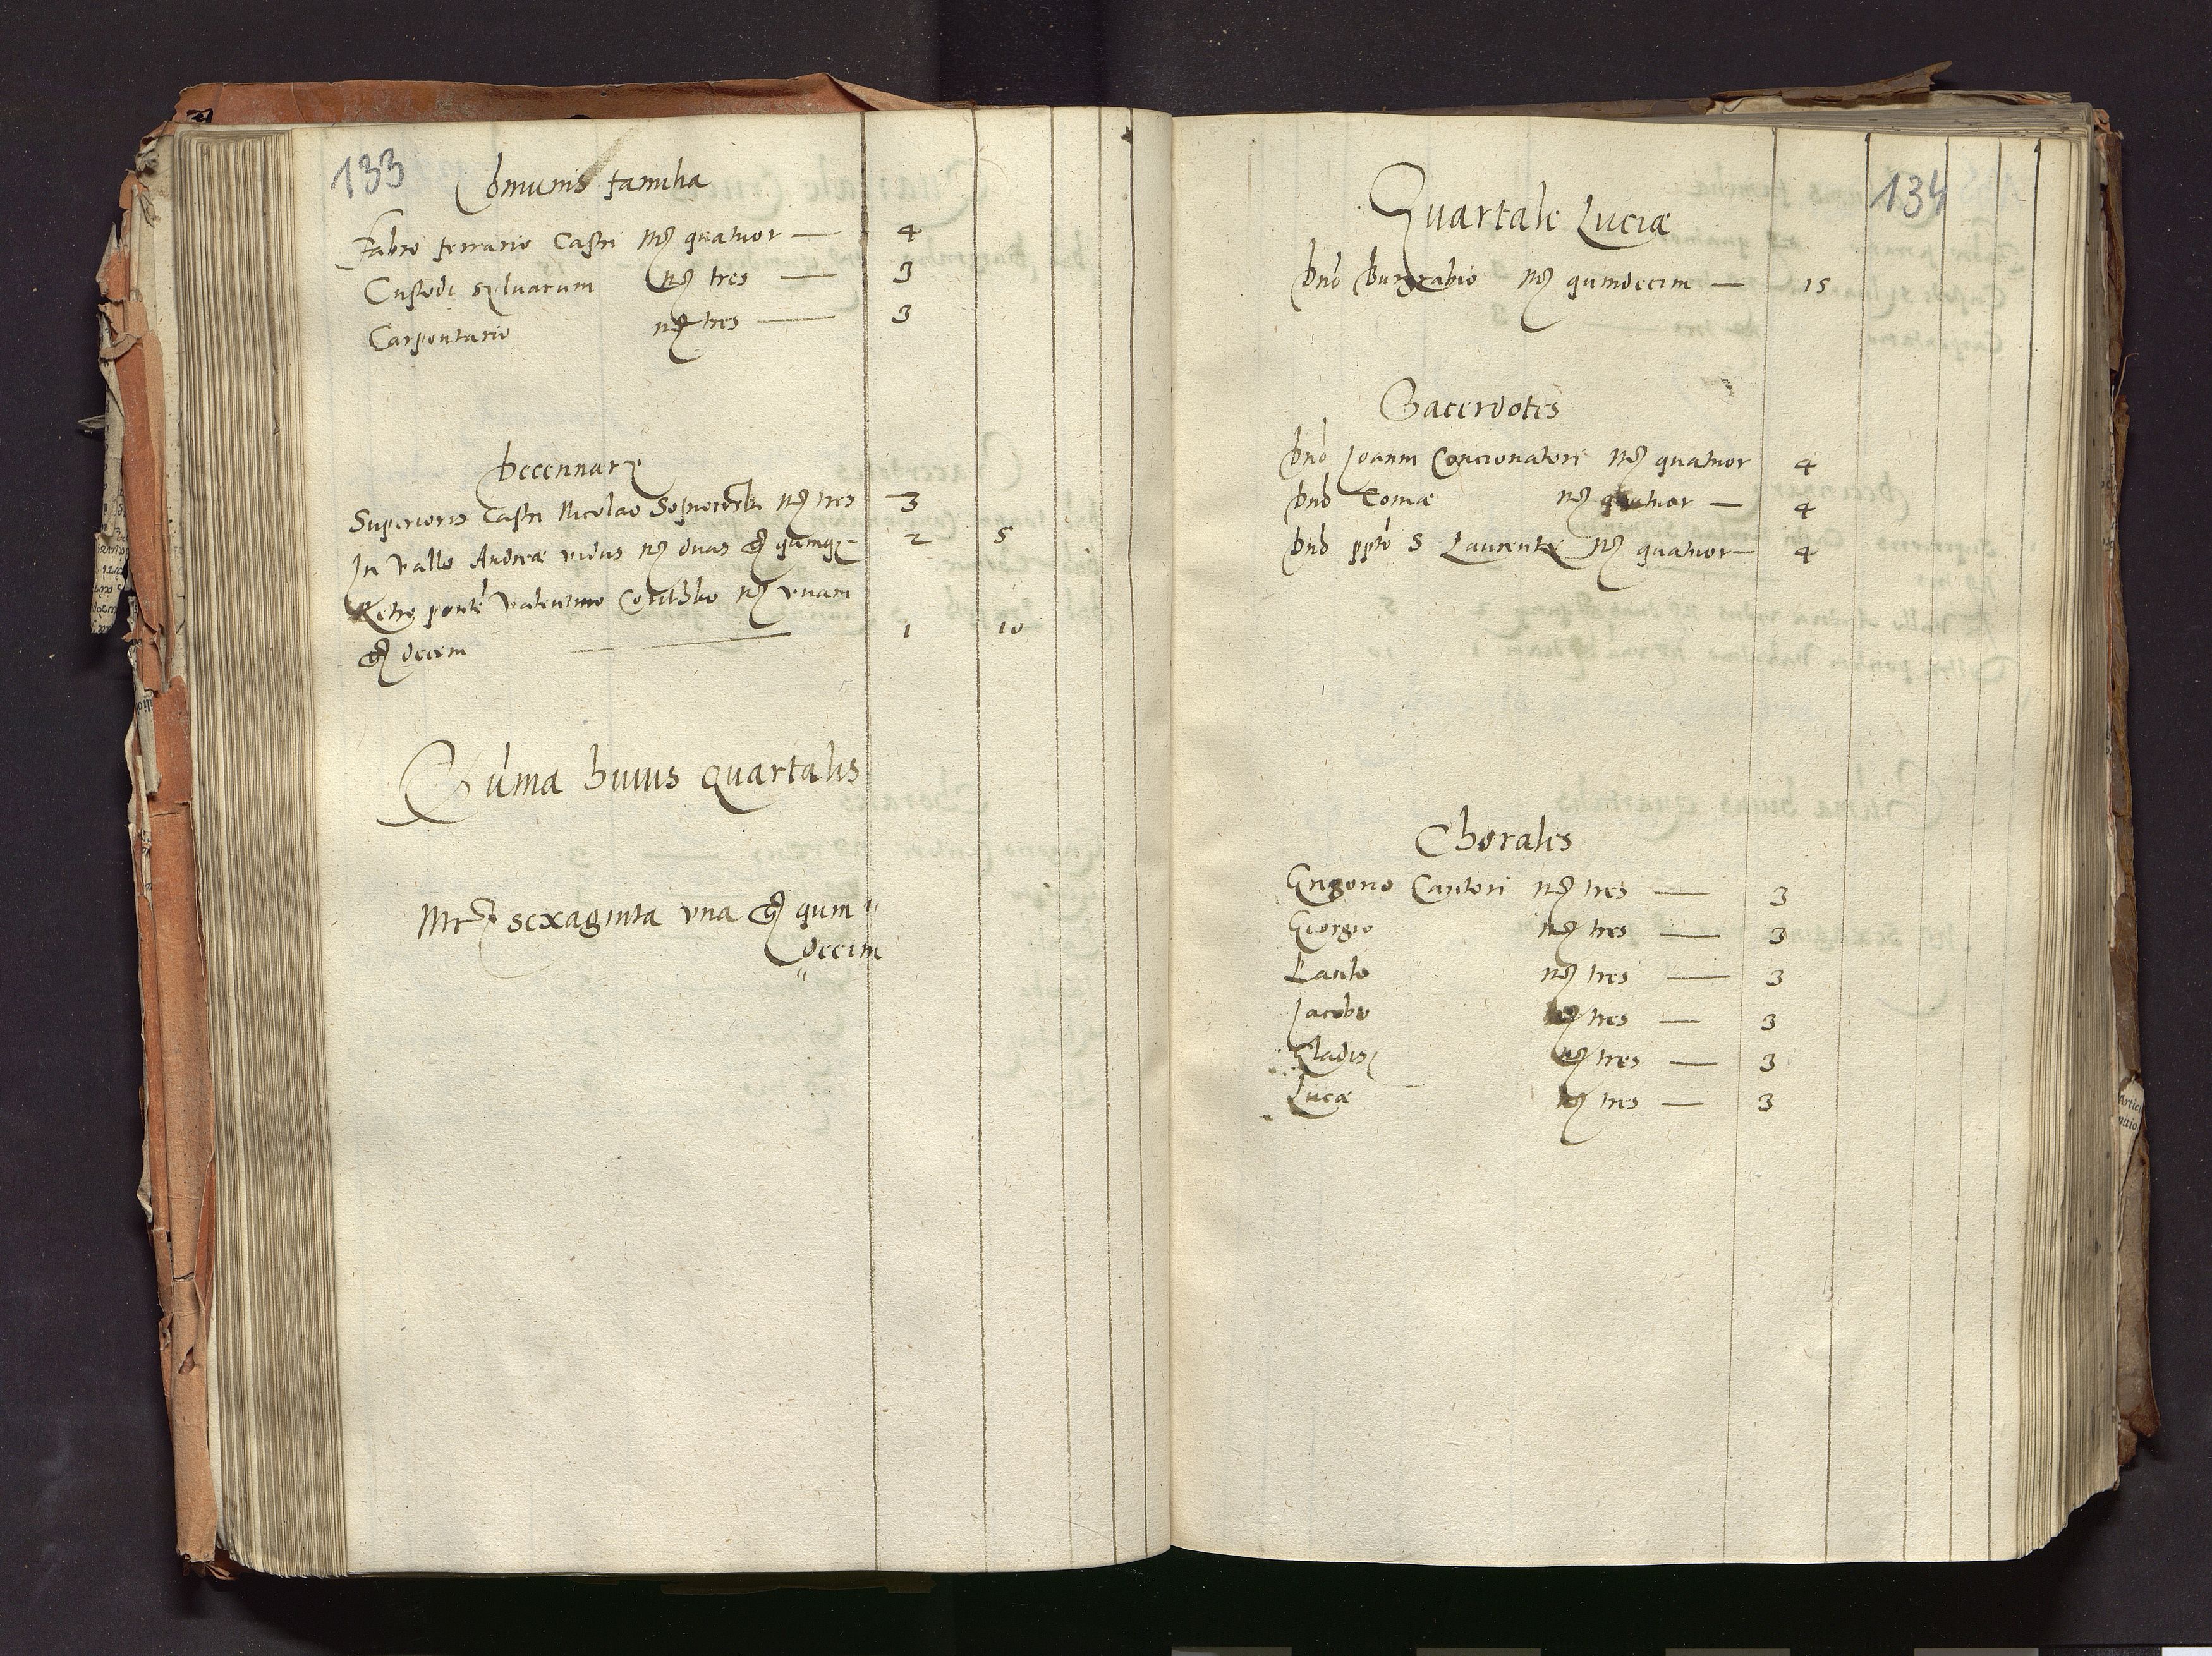 133
Comunis familia
Fabro ferrario Castri mrc quatuor — 4
Custodi syluarum mrc tres — 3
Carpentario mrc tres — 3
Decennary
Superioris Castri Nicolao mrc tres 3
In vallo Andreæ vidus mrc duas et quinque 2 5
Retro ponte Valentino mrc vnam
et decem — 1 10
Suma huius quartalis
Mrc sexaginta vna et quin
decim
134
Quartale Luciæ
Dno Burgrabio mrc quindecim — 15
Sacerdotes
Dno Joanni Concionatori mrc quatuor 4
Dno Tomæ mrc quatuor — 4
Dno ppto S Laurenty mrc quatuor — 4
Chorales
Gregorio Cantori mrc tres — 3
Georgio mrc tres — 3
mrc tres — 3
Jacobo mrc tres — 3
mrc tres — 3
Lucæ mrc tres — 3